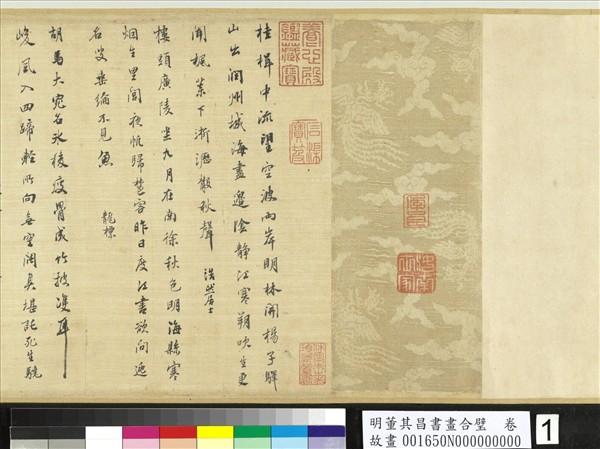 養心殿鑑藏寶
桂楫中流望空波兩岸明林開楊子驛
山出潤州城海盡邊陰靜江寒朔吹生更
聞楓葉下淅瀝數秋聲 浩然居士
樓頭廣陵近九月在南徐秋色明海縣寒
烟生里閭夜帆歸楚客昨日度江書欲問逃
名叟垂綸不見魚 龍標
胡馬大宛名 稜瘦骨成竹披雙耳
峻風入四蹄輕所向無空闊真堪託死生驍
明董其昌書畫合璧 卷
故畫 001650N000000000
1